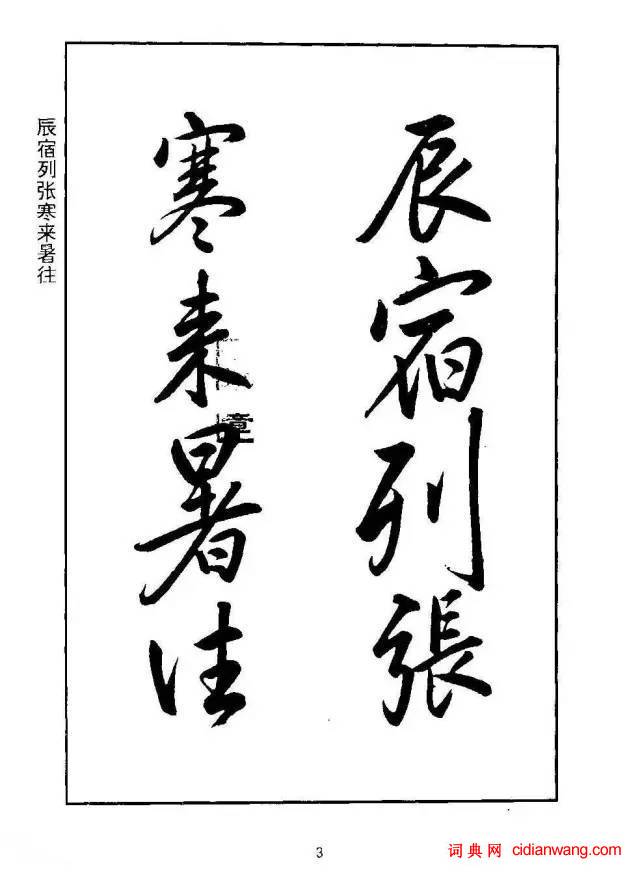 辰宿列張
寒来暑往
辰宿列张寒来暑往
3
词典网 cidianwang.com